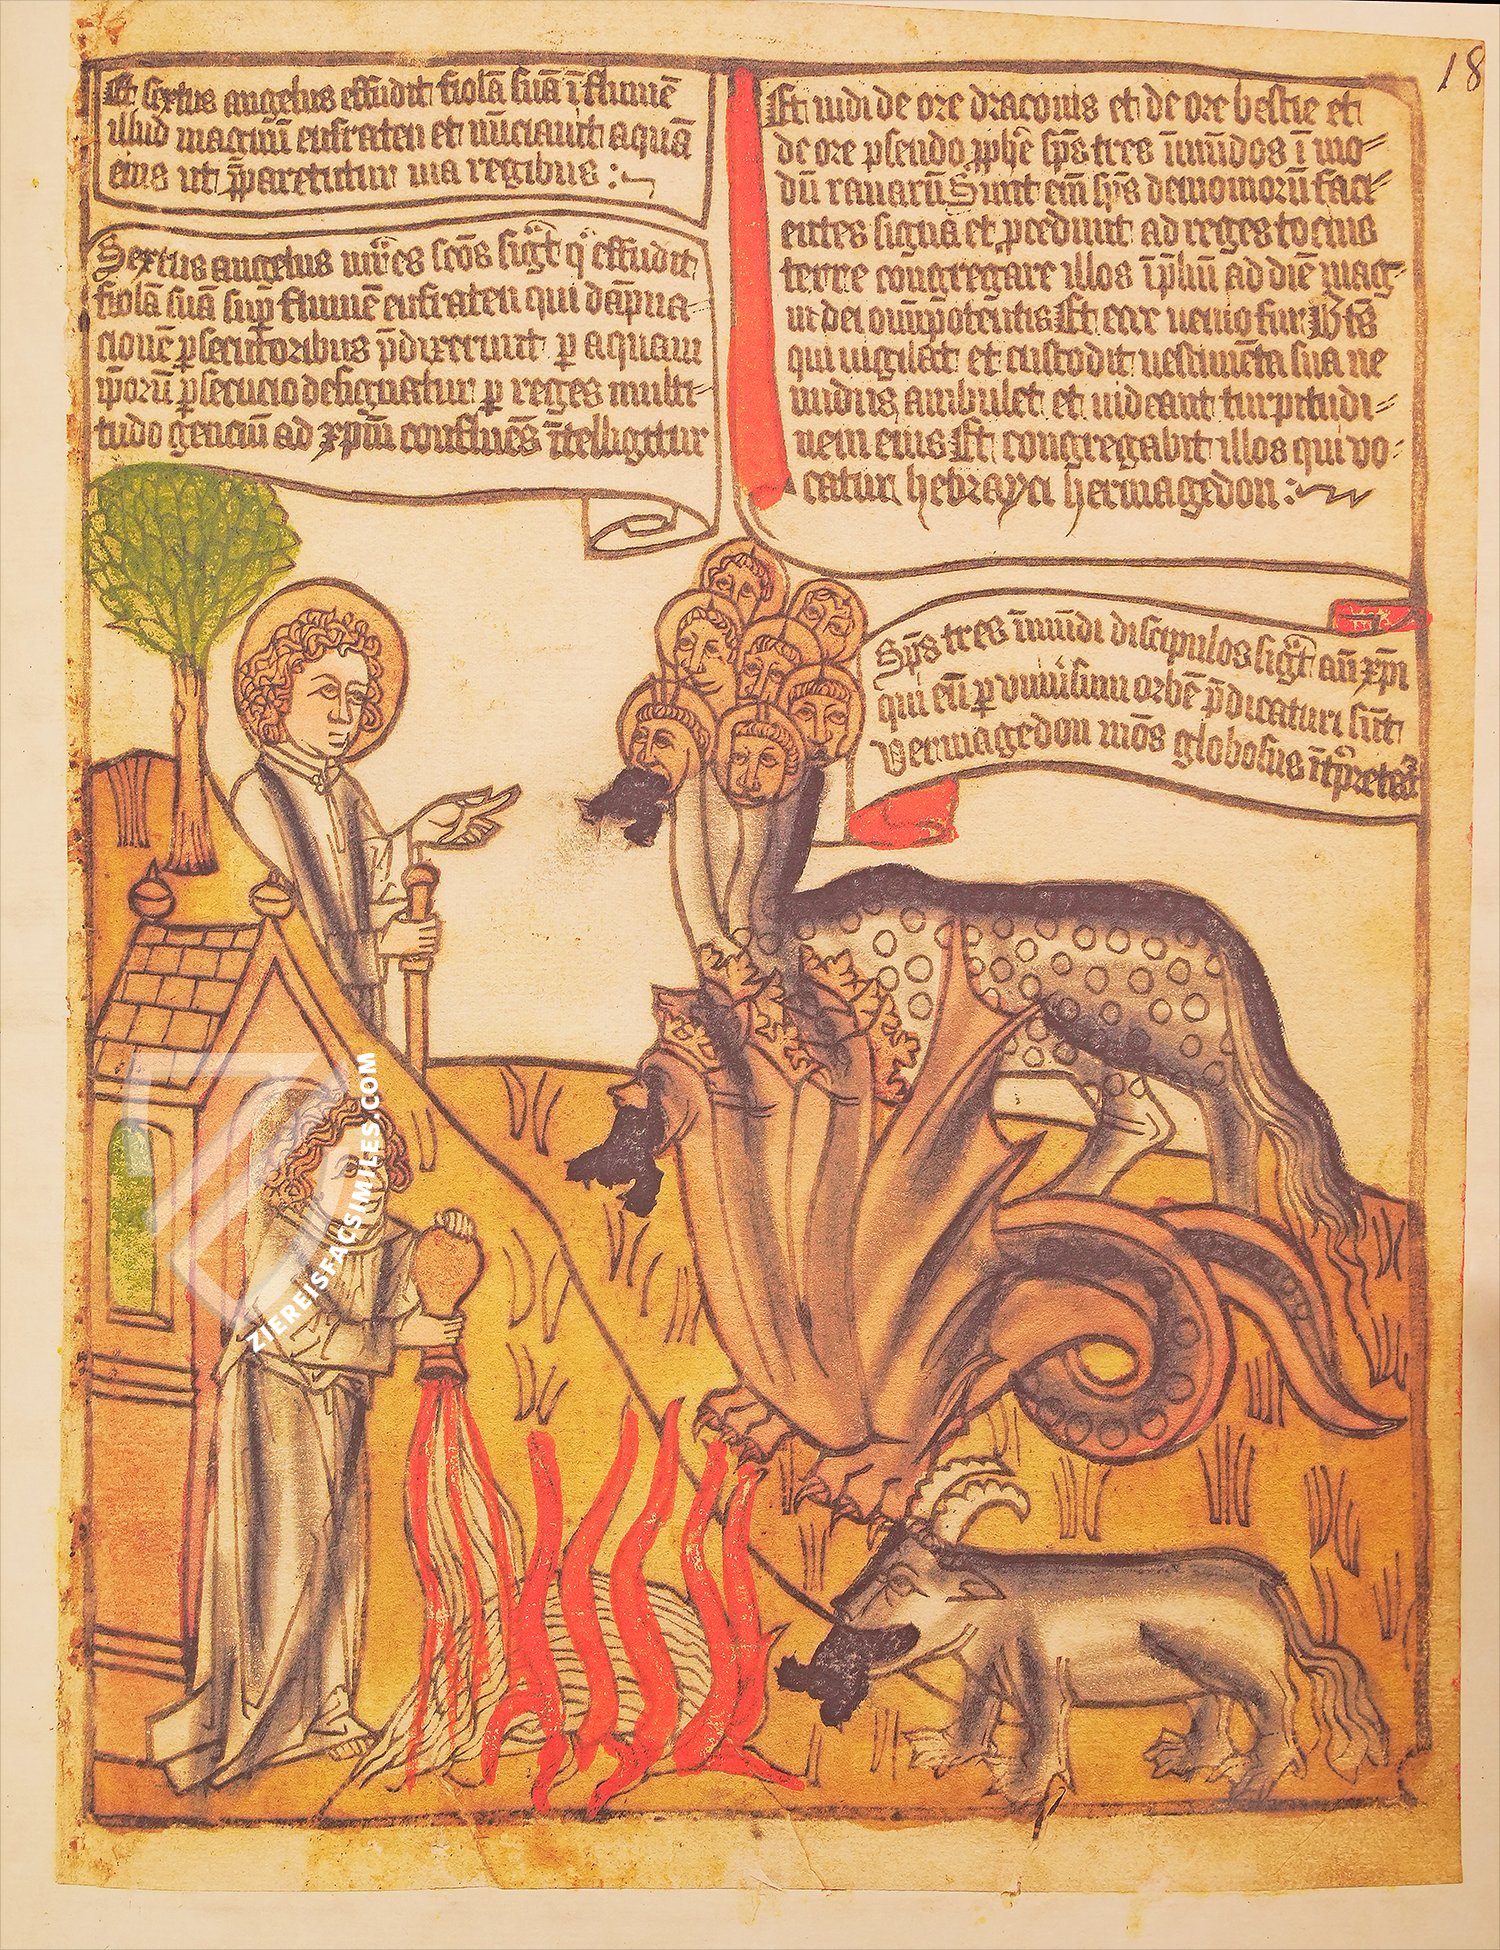 Et sextus angelus effudit fiolā suā ī flumē
illud magnū eufraten et
eius ut p̄paretur via regibus :
Sextus angelus sc̄os sig͛t q effudit
fiolā suā sup̱ flumē eufraten qui dāpna-
cionē ꝑsecutoribus p̄dixerunt ꝑ aquam
ip̄orū ꝑsecucio designatur ꝑ reges multi-
tudo genciū ad xp̄m confluēs ītelligitur
Et vidi de ore draconis et de ore bestie et
de ore pseudo ꝓphe sp̄s tres īmūdos ī mo-
dū ranarū Sunt em̄ sp̄s demoniorū faci-
entes signa et ꝓcedunt ad reges tocius
terre congregare illos ī p̄liū ad diē mag-
ni dei om̄ip̄otentis Et ecce venio fur Bt̄s
qui vigilat et custodit vestimēta sua ne
nudus ambulet et videant turpitudi-
nem eius Et congregabit illos qui vo-
catur hebrayci hermagedon :
Sp̄s tres īmūdi discipulos sig͛t an̄ xp̄i
qui eū ꝑ orbē p̄dicaturi sūt
Vermagedon mōs globosus īt͛pretat͛
18
ZIEREISFACSIMILES.COM